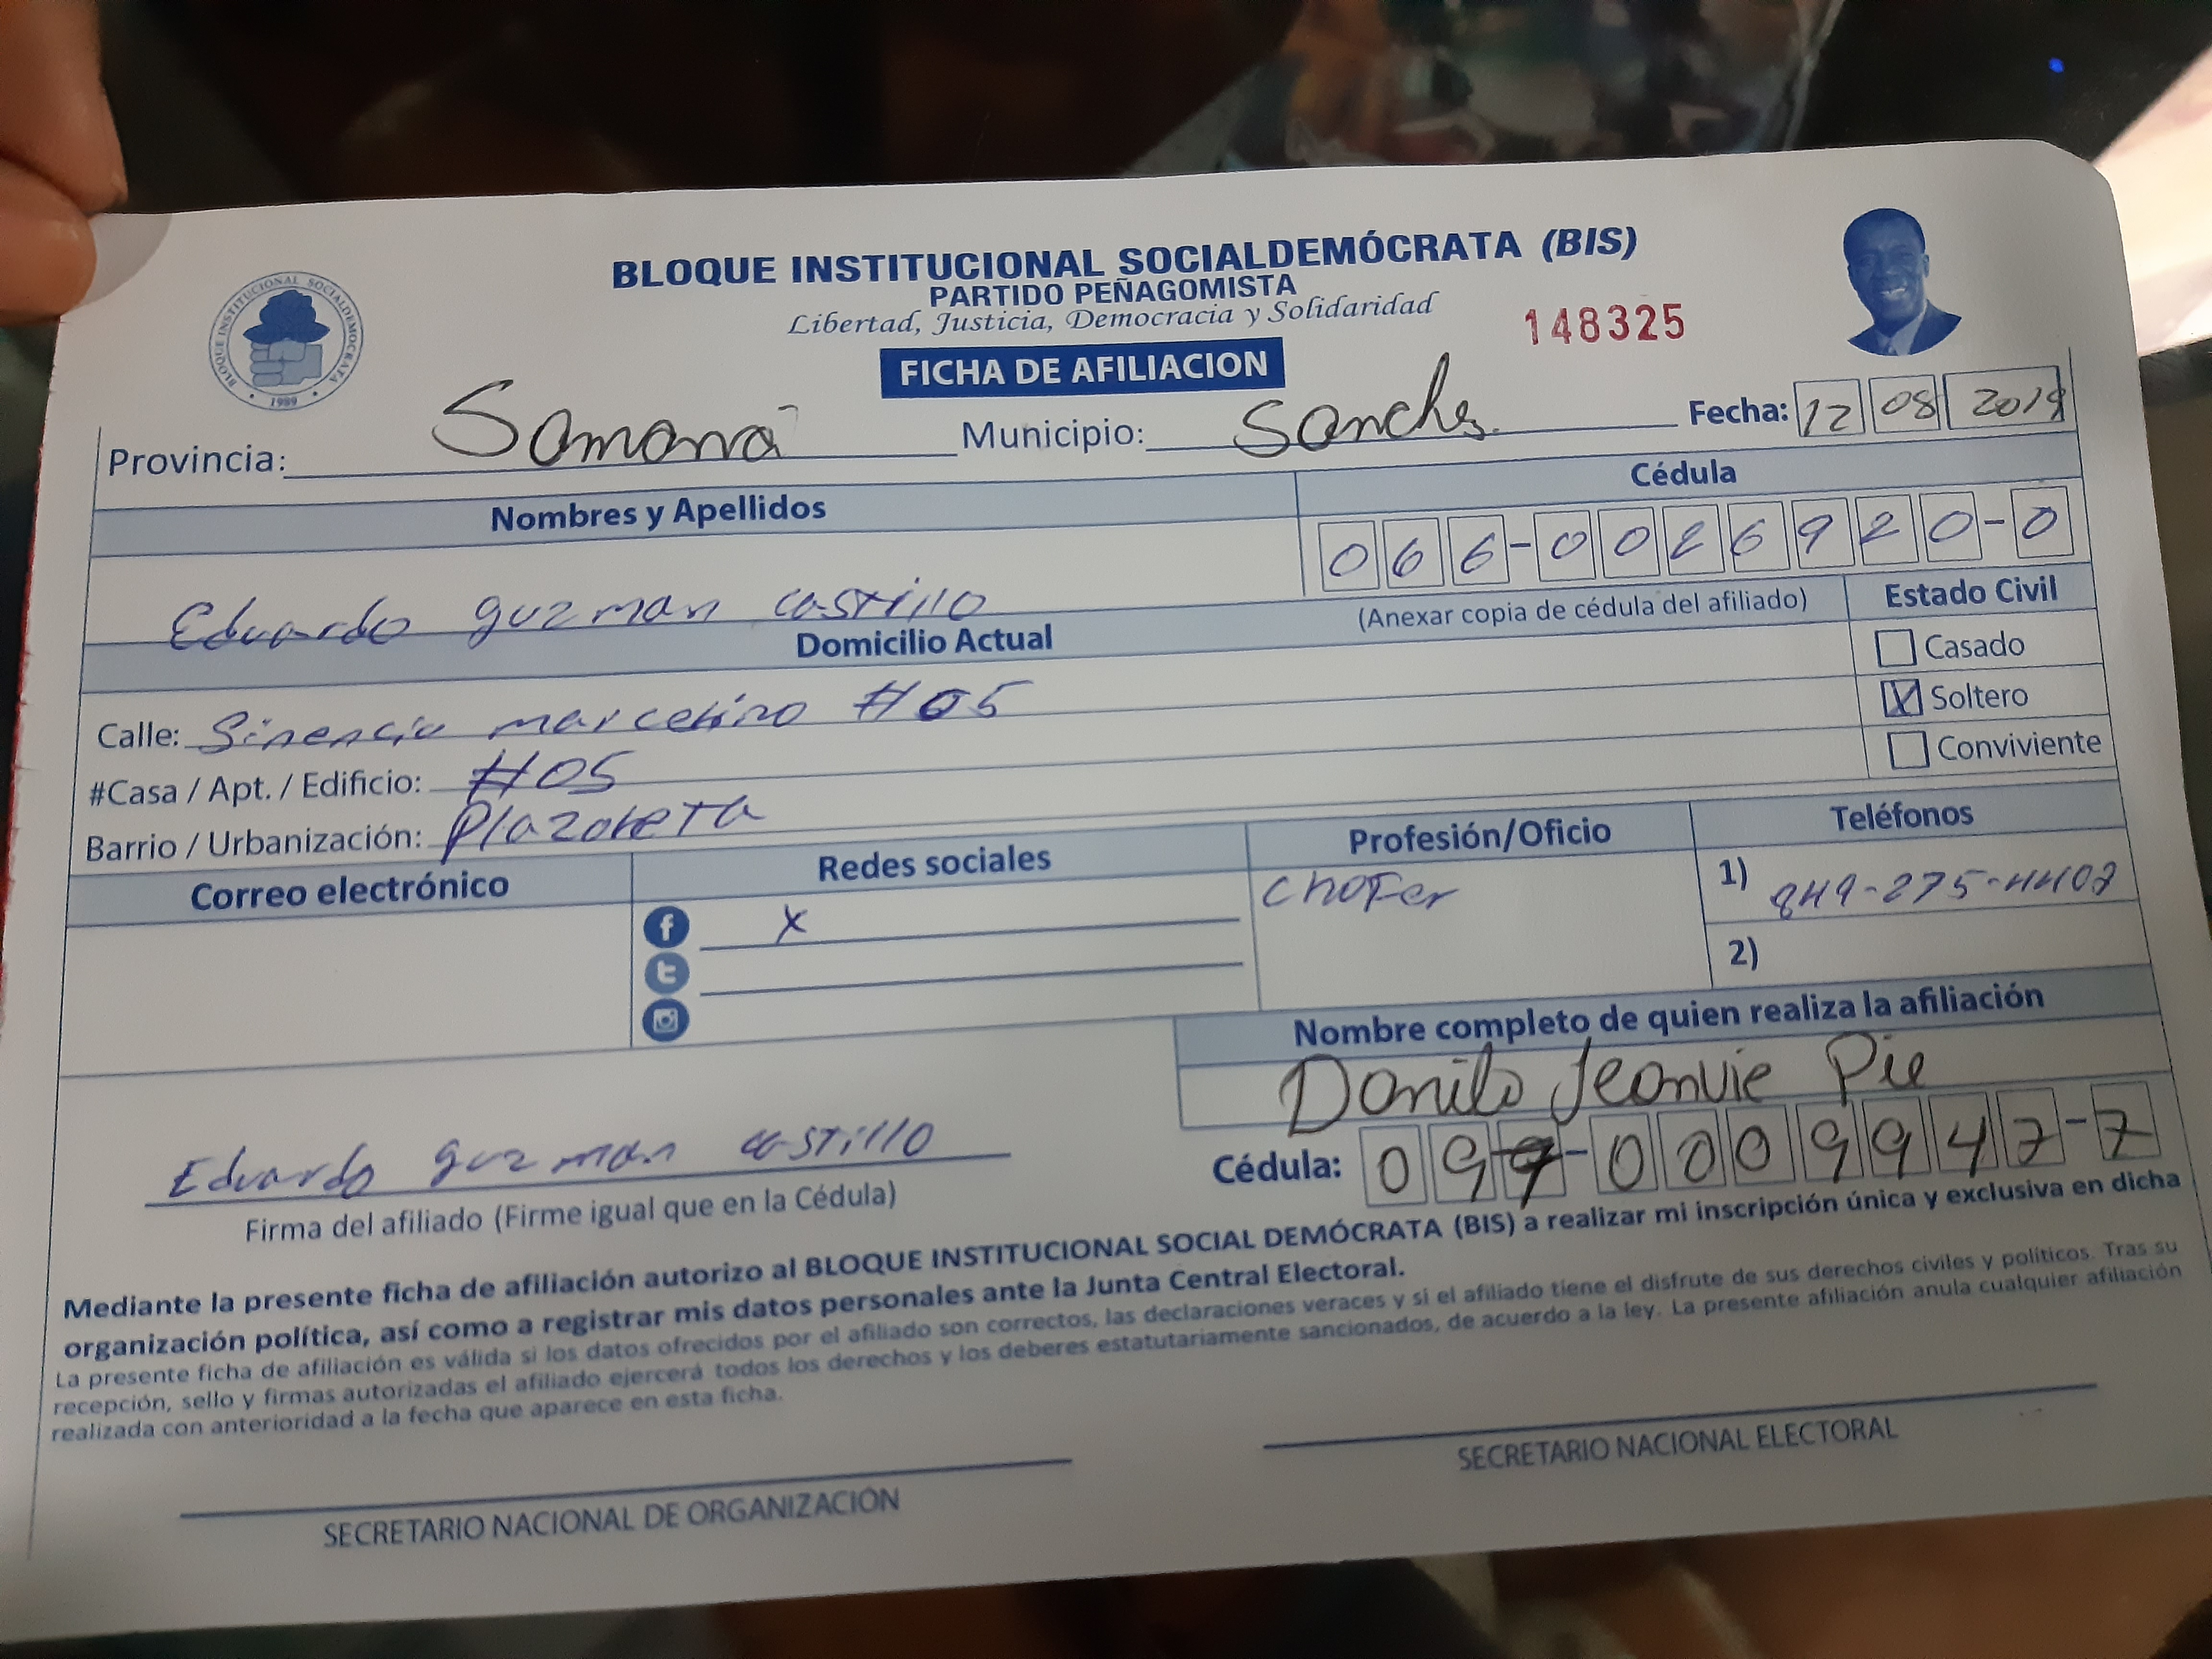 BLOQUE INSTITUCIONAL SOCIALDEMÓCRATA (BIS)
PARTIDO PEÑAGOMISTA
Libertad, Justicia, Democracia y Solidaridad
148325
BLOQUE INSTITUCIONAL SOCIALDEMOCRATA
1989
FICHA DE AFILIACION
Provincia: Samaná Municipio: Sanchs. Fecha: 12 08 2019
Nombres y Apellidos Cédula
Eduardo guzman castillo 066-0026920-0
(Anexar copia de cédula del afiliado) Estado Civil
Domicilio Actual
Casado
Calle: Sinencio marcelino #05
X Soltero
#Casa / Apt. / Edificio: #05
Conviviente
Barrio / Urbanización: Plazoleta
Correo electrónico Redes sociales Profesión/Oficio Teléfonos
f x
Chofer
1) 849-275-4402
2)
Nombre completo de quien realiza la afiliación
Danilo Jeanvie Pie
Eduardo guzman castillo
Cédula: 097-0009947-7
Firma del afiliado (Firme igual que en la Cédula)
Mediante la presente ficha de afiliación autorizo al BLOQUE INSTITUCIONAL SOCIAL DEMÓCRATA (BIS) a realizar mi inscripción única y exclusiva en dicha
organización política, así como a registrar mis datos personales ante la Junta Central Electoral.
La presente ficha de afiliación es válida si los datos ofrecidos por el afiliado son correctos, las declaraciones veraces y si el afiliado tiene el disfrute de sus derechos civiles y políticos. Tras su
recepción, sello y firmas autorizadas el afiliado ejercerá todos los derechos y los deberes estatutariamente sancionados, de acuerdo a la ley. La presente afiliación anula cualquier afiliación
realizada con anterioridad a la fecha que aparece en esta ficha.
SECRETARIO NACIONAL DE ORGANIZACIÓN
SECRETARIO NACIONAL ELECTORAL